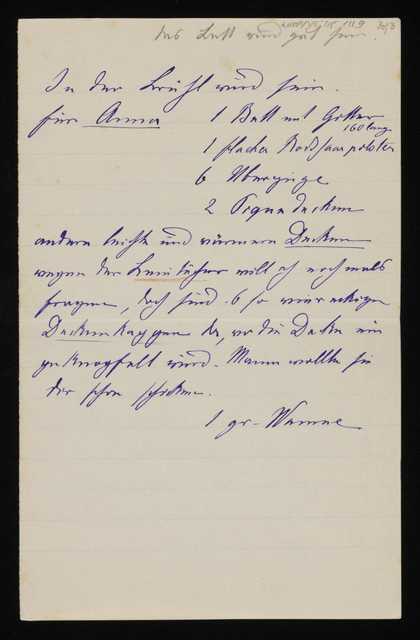 das Bett wird gut sein.
In der Brühl wird sein.
für Anna 1 Bett mit Gitter
160 lang
1 flacher Rosshaarpolster
6 Überzüge
2 Piquedecken
andere leichte und wärmere Decken
wegen der Leintücher will ich nochmals
fragen, doch sind 6 so viereckige
Deckenkappen da, wo die Decke ein
geknöpfelt wird. Mama wollte sie
dir schon schicken.
1 gr. Wanne